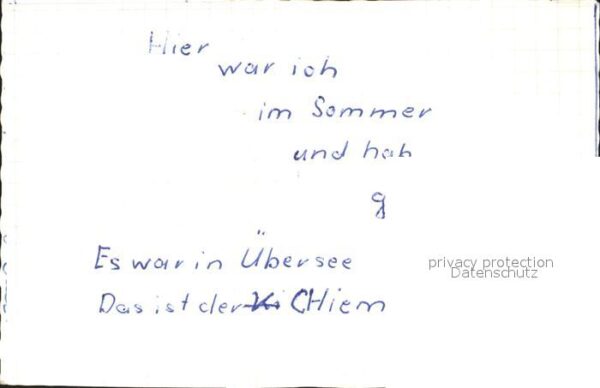 Hier
war ich
im Sommer
und hab
g
Es war in Übersee
privacy protection
Datenschutz
Das ist der Ki CHiem